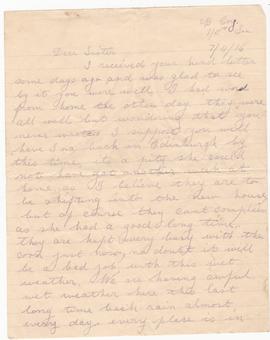 B Coy
7/9/16
Dear Sister
I received your kind letter
some days ago and was glad to see
by it you were well. I had word
from home the other day they were
all well but wondering that you
never wrote I suppose you will
have Ina back in Edinburgh by
this time, its a pity she could
not have got another week at
home, as I believe they are to
be shifting into the new house
but of course they cant complain
as she had a good long time.
they are kept very busy with the
corn just now, no doubt it will
be a bad job with this wet
weather. We are having awful
wet weather here this last
long time back rain almost
every day every place is in